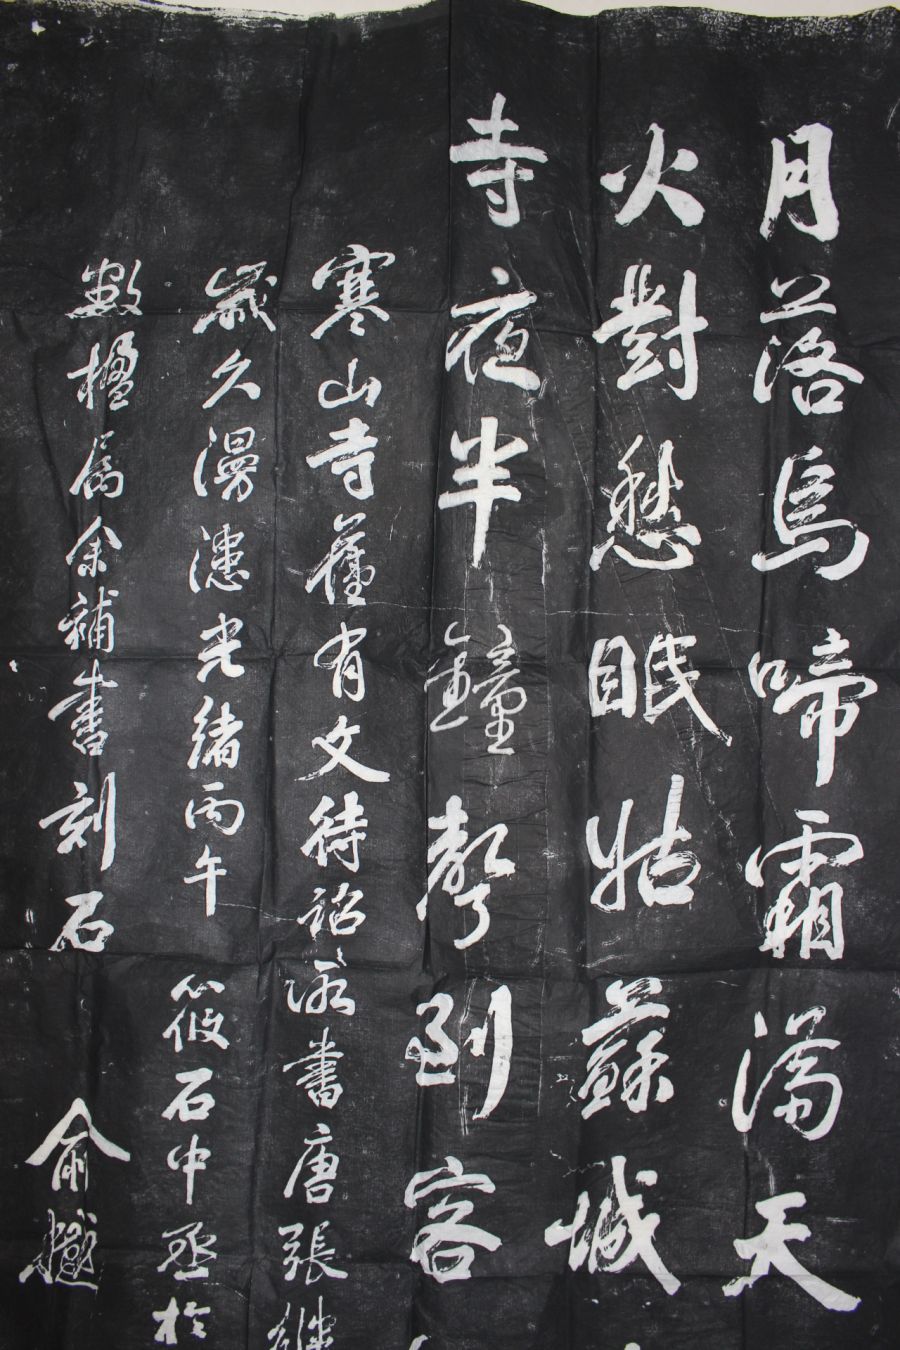 月落烏啼霜滿天
火對愁眠姑蘇城
寺夜半鐘聲到客
寒山寺舊有文待詔所書唐張繼
歲久漫漶光緒丙午
筱石中丞於
數楹屬余補書刻石
俞樾